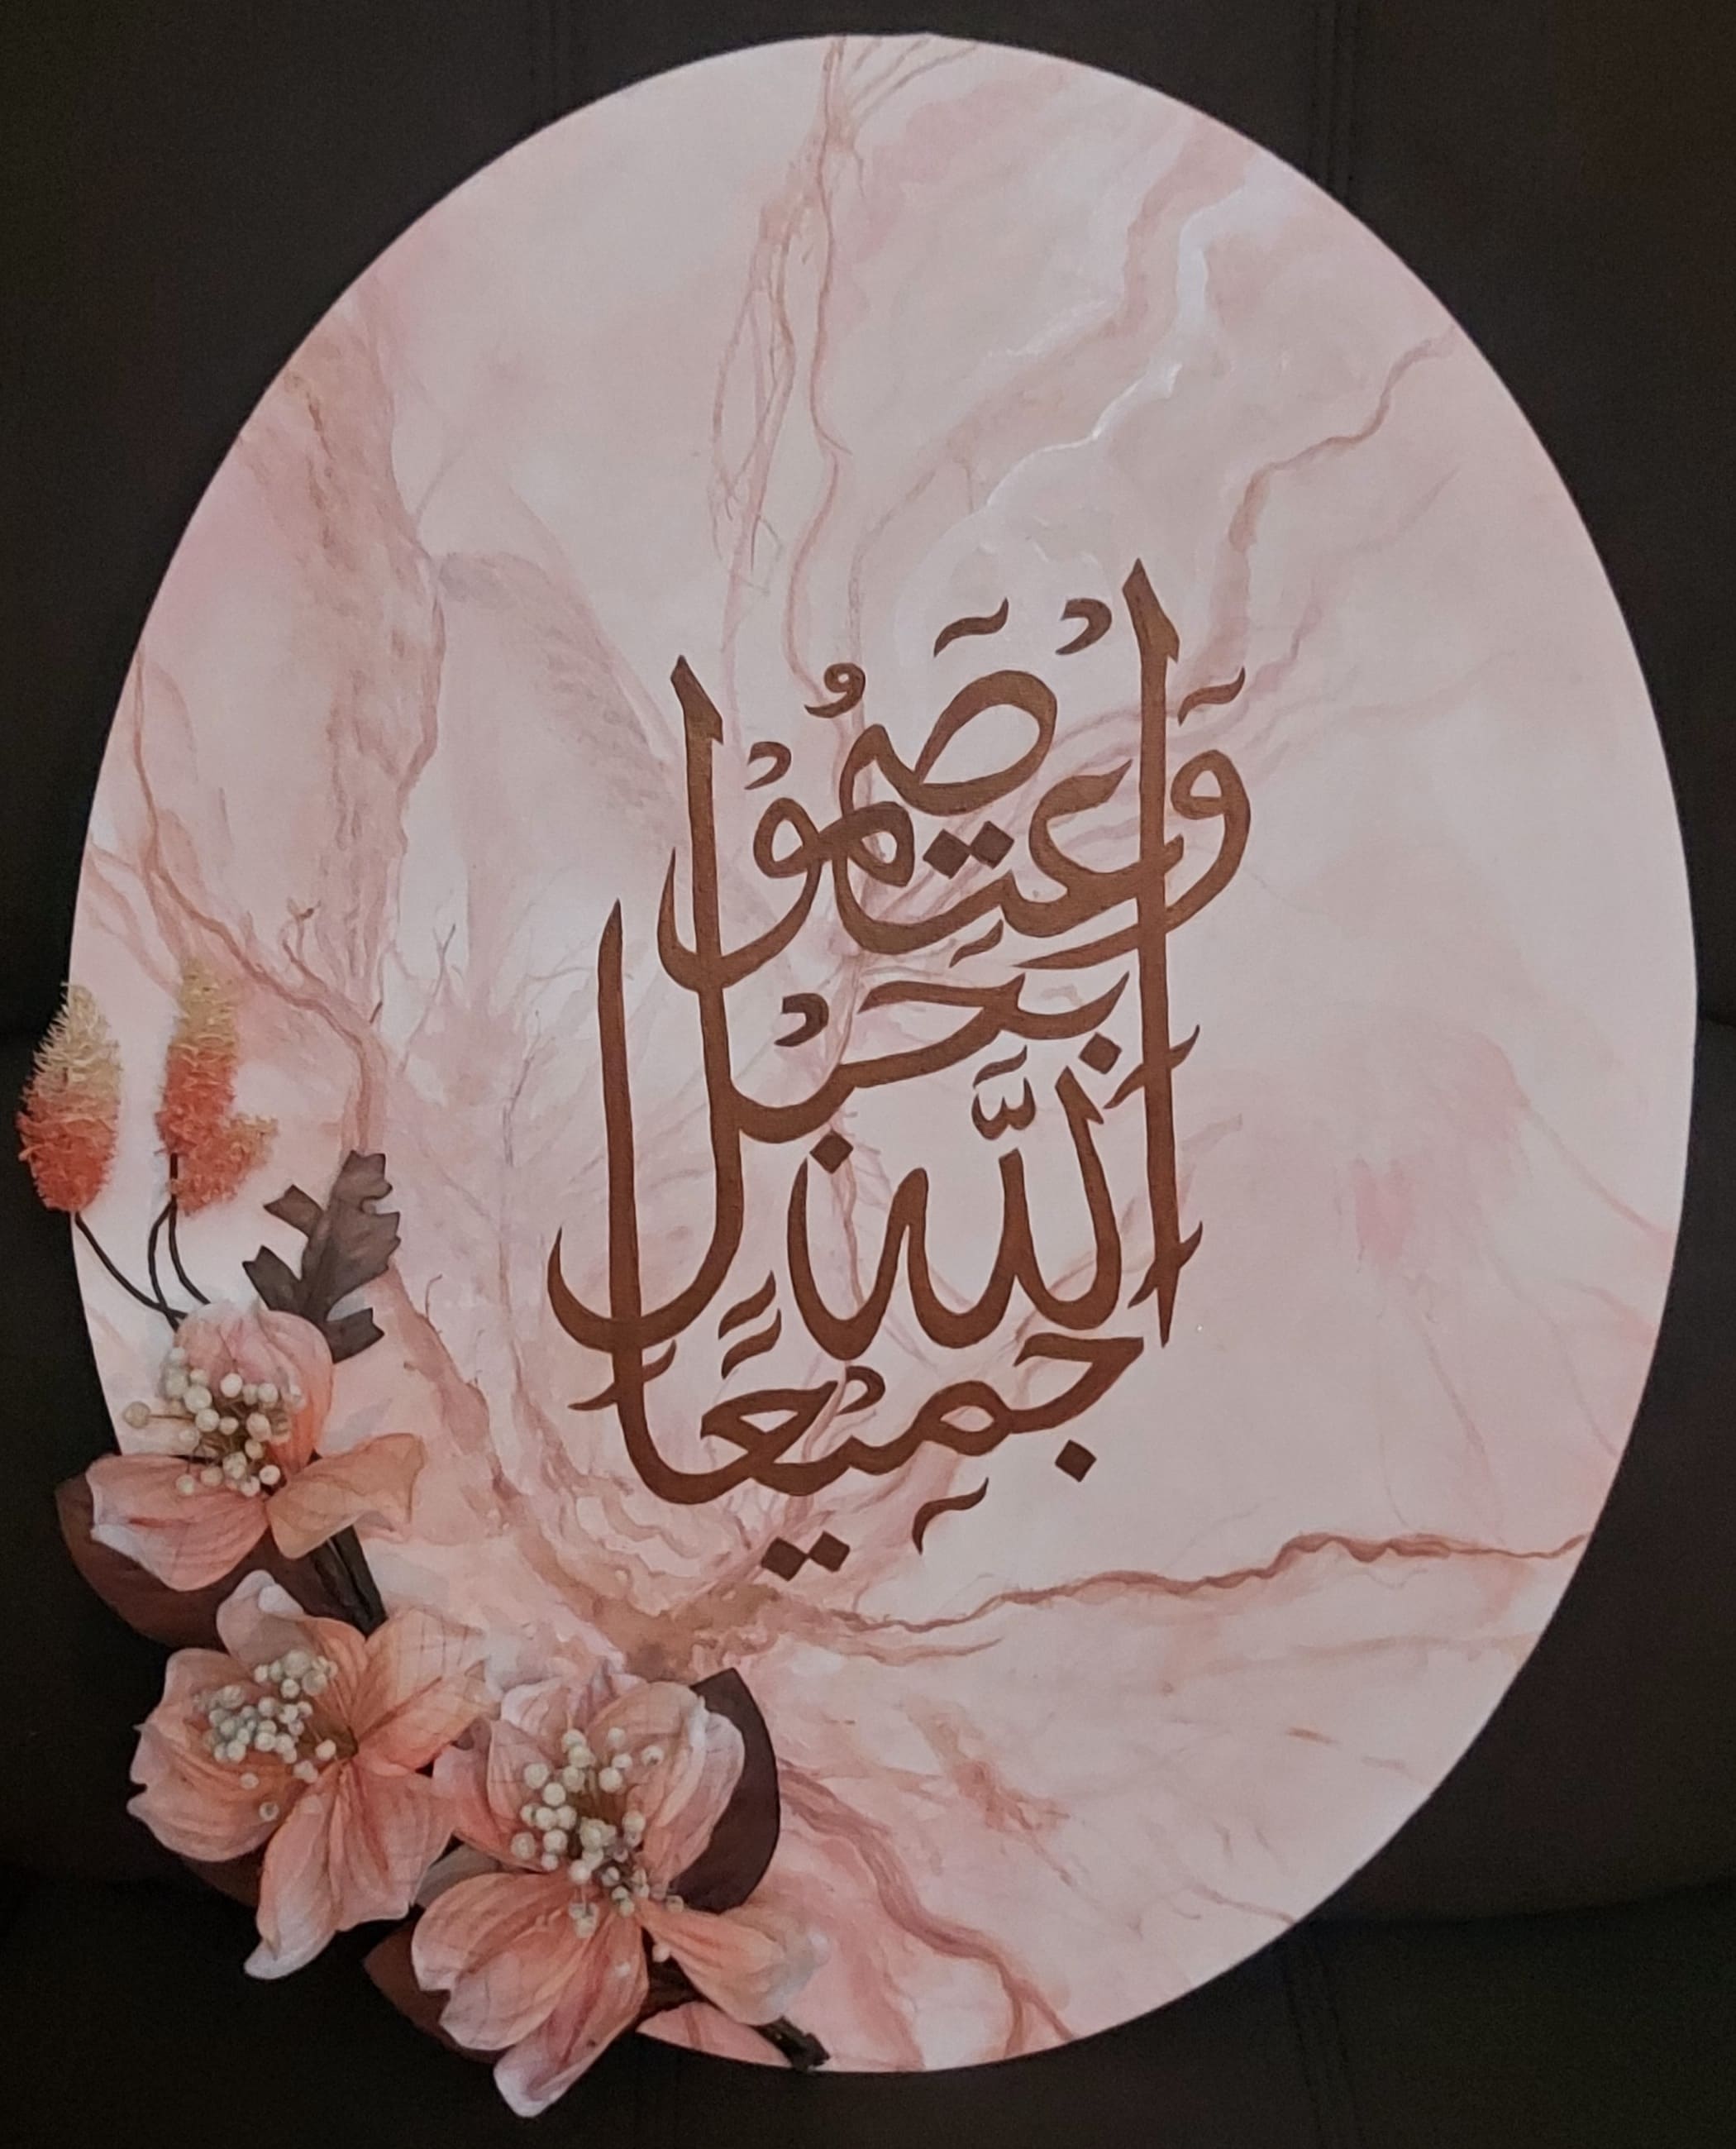 وَاعْتَصِمُوْا
بِحَبْلِ
اللّٰهِ
جَمِيْعًا